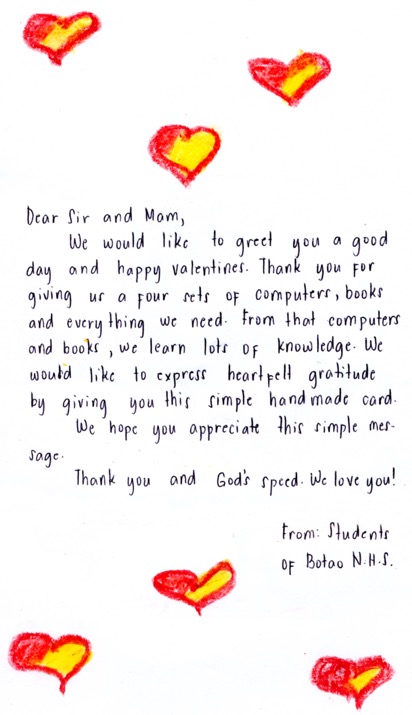 Dear Sir and Mam,
We would like to greet you a good
day and happy valentines. Thank you for
giving us a four sets of computers, books
and everything we need. From that computers
and books, we learn lots of knowledge. We
would like to express heartfelt gratitude
by giving you this simple handmade card.
We hope you appreciate this simple mes-
sage.
Thank you and God's speed. We love you!
From: Students
of Botao N.H.S.